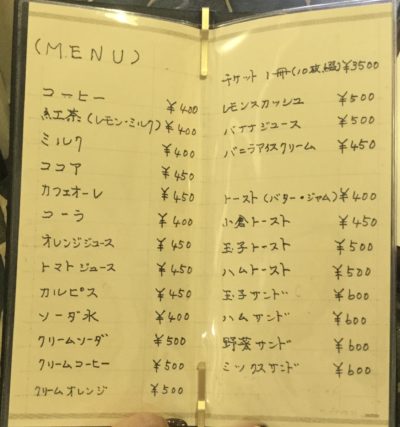 (MENU)
コーヒー ¥400
紅茶(レモン・ミルク) ¥400
ミルク ¥400
ココア ¥450
カフェオーレ ¥450
コーラ ¥400
オレンジジュース ¥450
トマトジュース ¥450
カルピス ¥450
ソーダ水 ¥400
クリームソーダ ¥500
クリームコーヒー ¥500
クリームオレンジ ¥500
チケット 1冊(10枚綴) ¥3500
レモンスカッシュ ¥500
バナナジュース ¥500
バニラアイスクリーム ¥450
トースト(バター・ジャム) ¥400
小倉トースト ¥450
玉子トースト ¥500
ハムトースト ¥500
玉子サンド ¥600
ハムサンド ¥600
野菜サンド ¥600
ミックスサンド ¥600